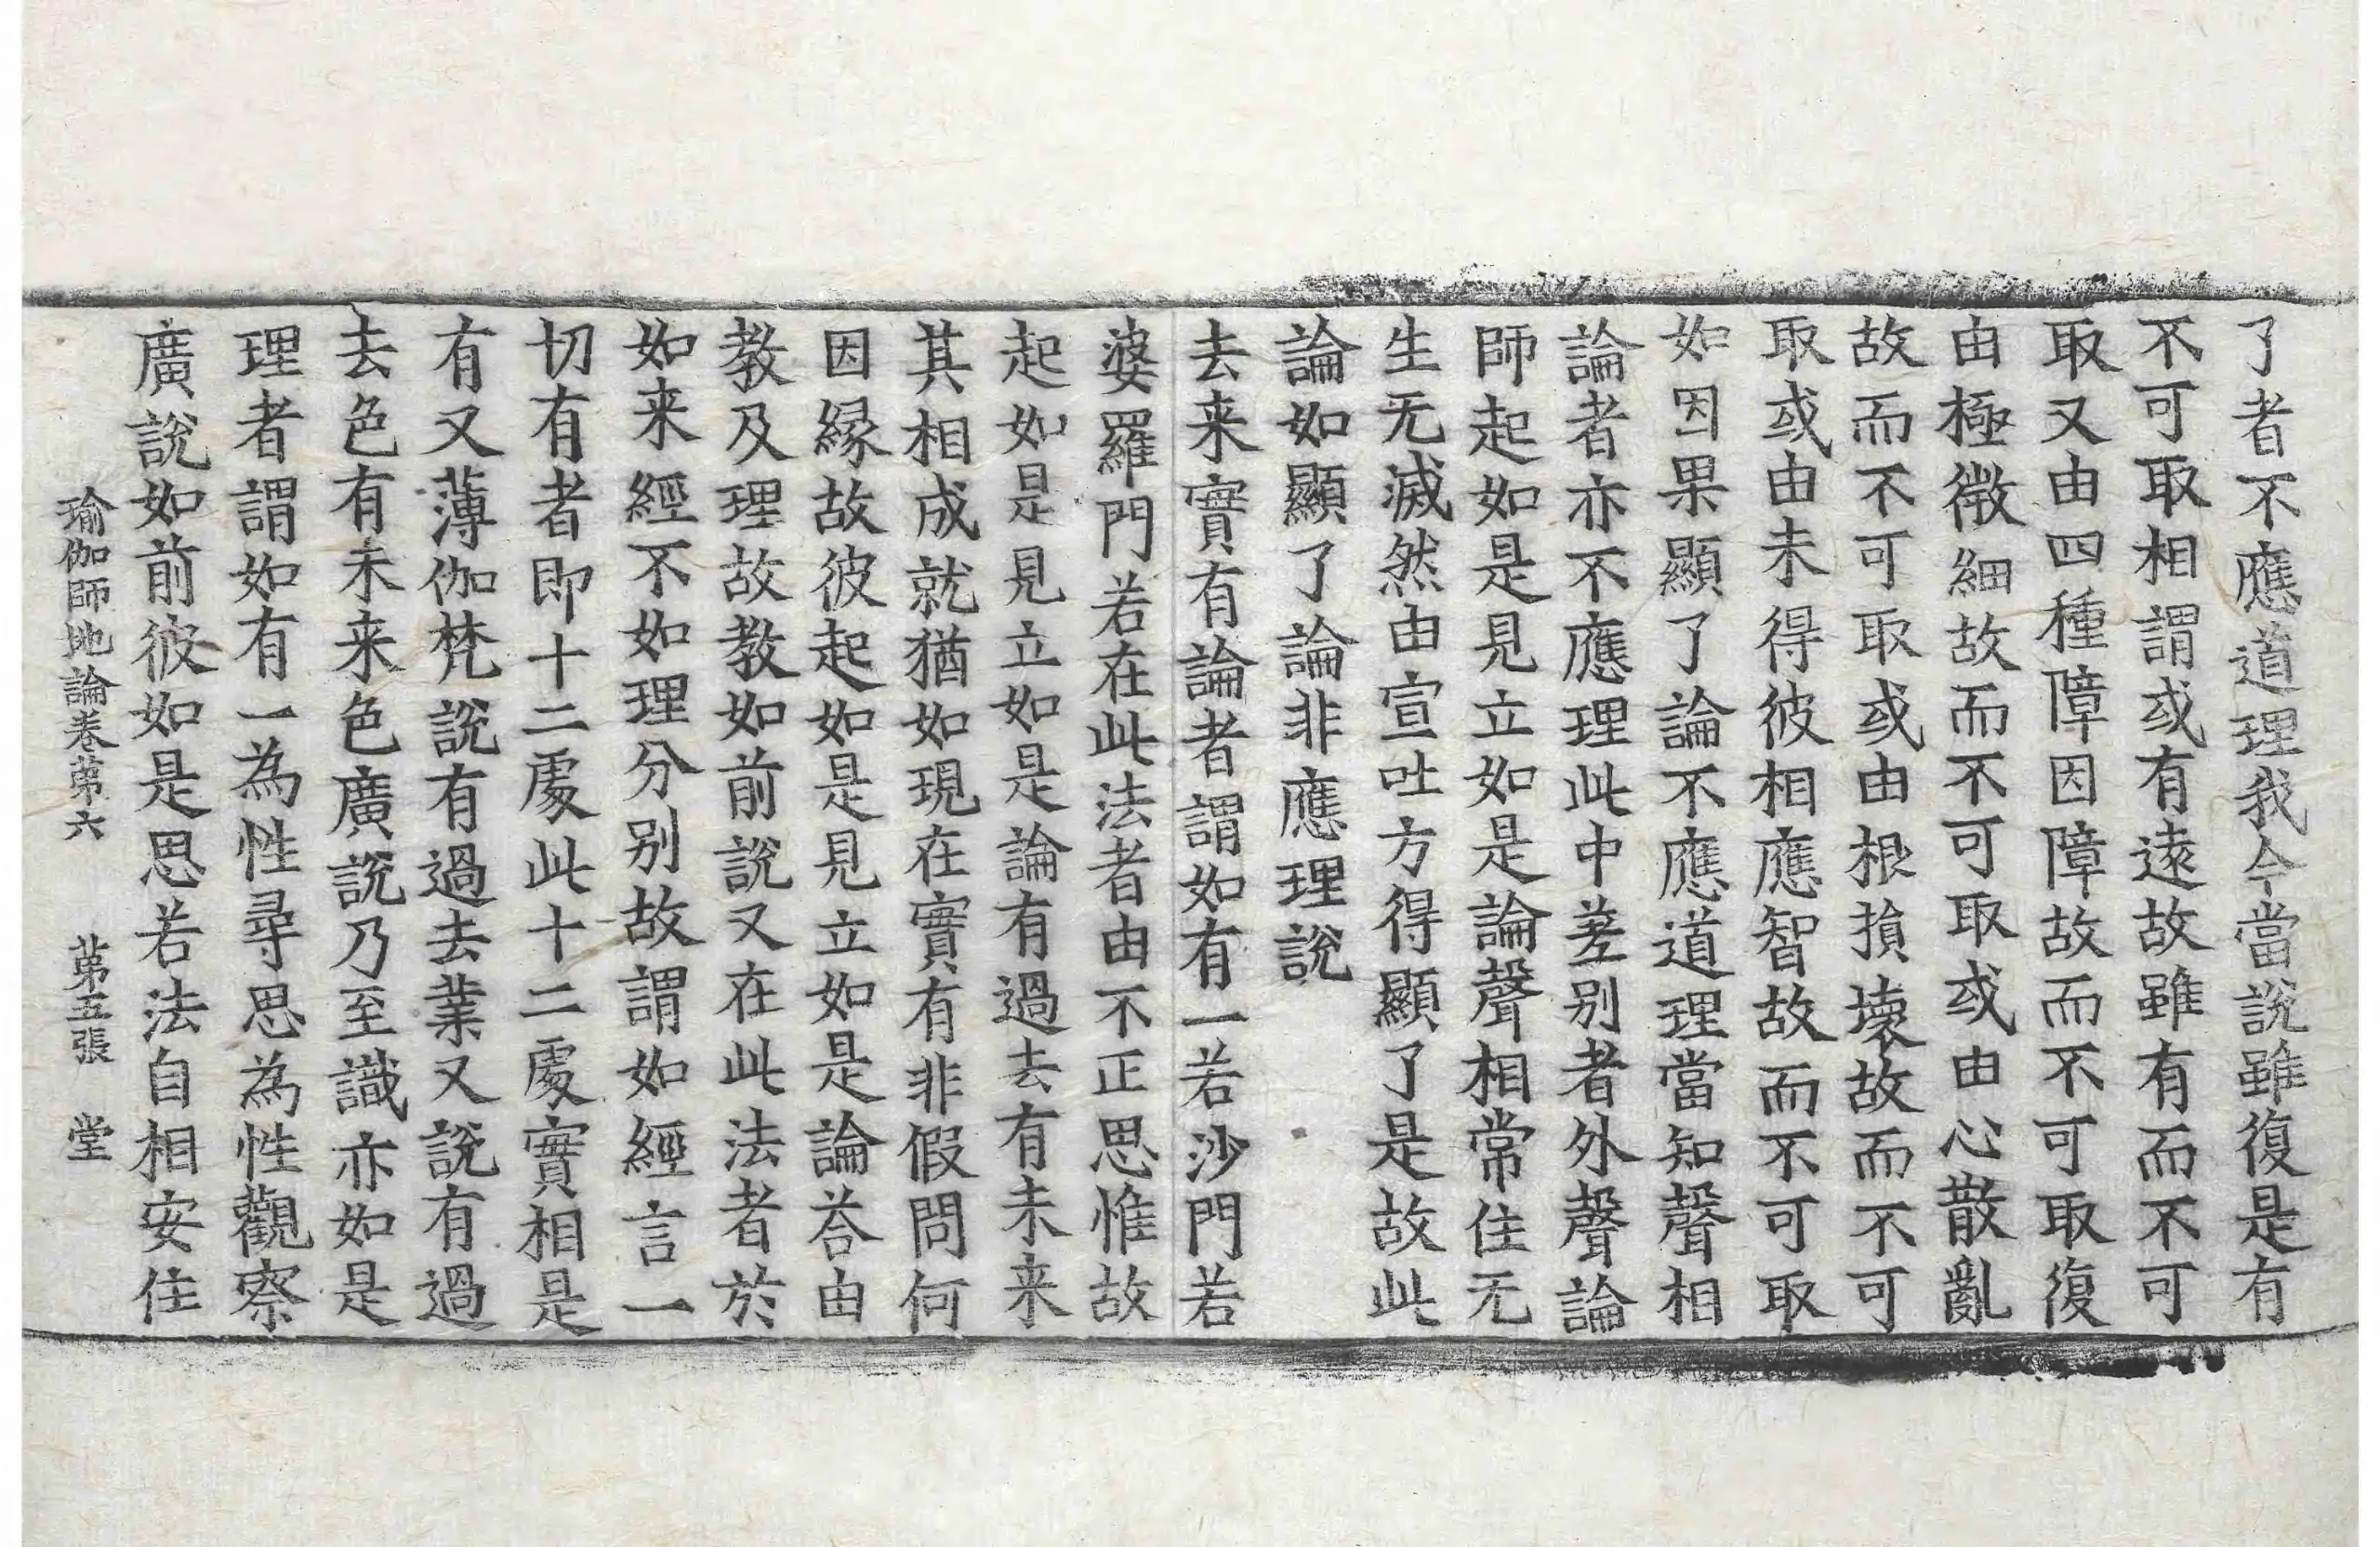 了者不應道理我今當說雖復是有
不可取相謂或有遠故雖有而不可
取又由四種障因障故而不可取復
由極微細故而不可取或由心散亂
故而不可取或由根損壞故而不可
取或由未得彼相應智故而不可取
如因果顯了論不應道理當知聲相
論者亦不應理此中差别者外聲論
師起如是見立如是論聲相常住无
生无滅然由宣吐方得顯了是故此
論如顯了論非應理說
去来實有論者謂如有一若沙門若
婆羅門若在此法者由不正思惟故
起如是見立如是論有過去有未来
其相成就猶如現在實有非假問何
因緣故彼起如是見立如是論荅由
教及理故教如前說又在此法者於
如来經不如理分别故謂如經言一
切有者即十二處此十二處實相是
有又薄伽梵說有過去業又說有過
去色有未来色廣說乃至識亦如是
理者謂如有一為性尋思為性觀察
廣說如前彼如是思若法自相安住
瑜伽師地論卷苐六　苐五張　堂